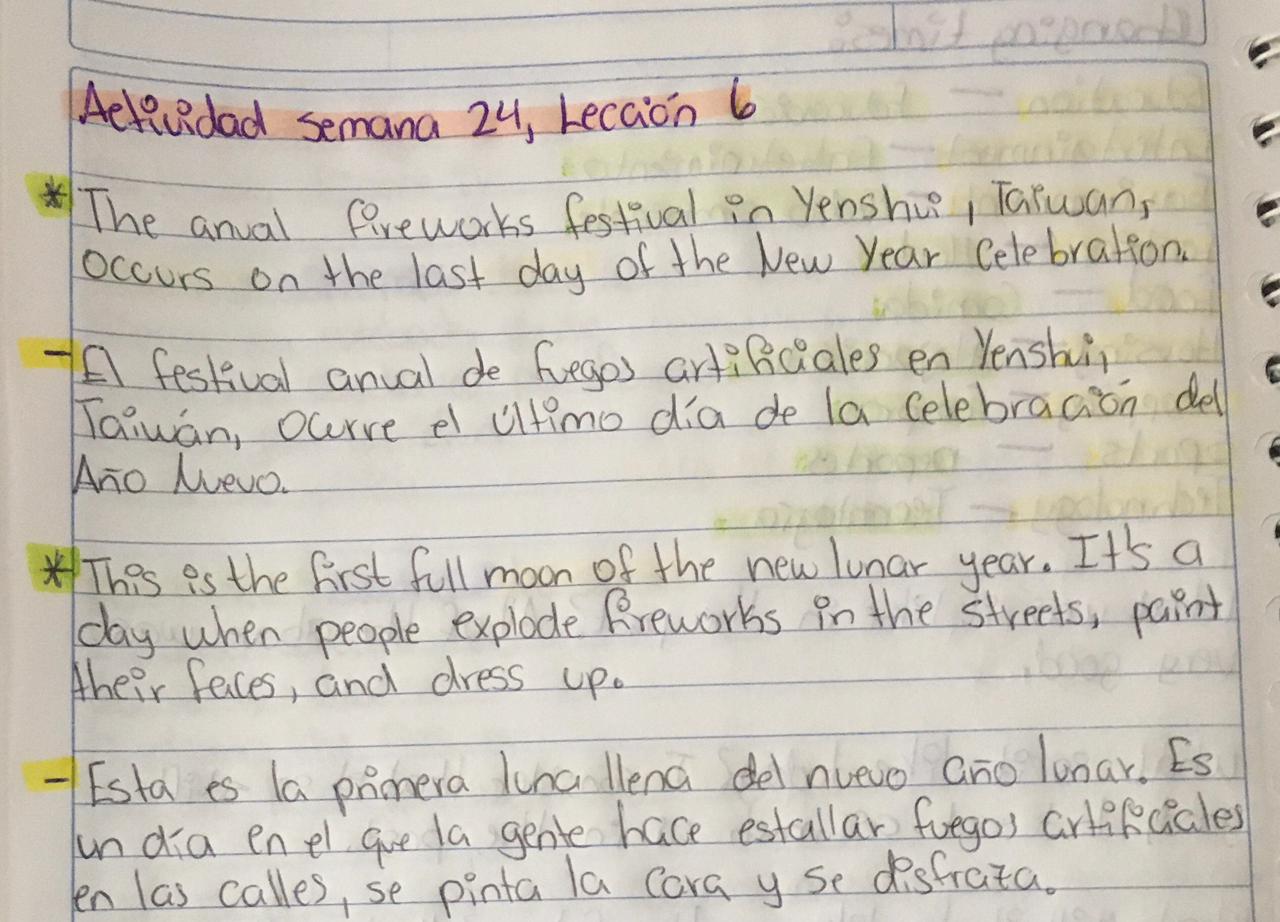 Actividad semana 24, Lección 6
* The anual fireworks festival in Yenshui, Taiwan,
occurs on the last day of the New Year Celebration.
- El festival anual de fuegos artificiales en Yenshui,
Taiwán, ocurre el último día de la celebración del
Año Nuevo.
* This is the first full moon of the new lunar year. It's a
day when people explode fireworks in the streets, paint
their faces, and dress up.
- Esta es la primera luna llena del nuevo año lunar. Es
un día en el que la gente hace estallar fuegos artificiales
en las calles, se pinta la cara y se disfraza.